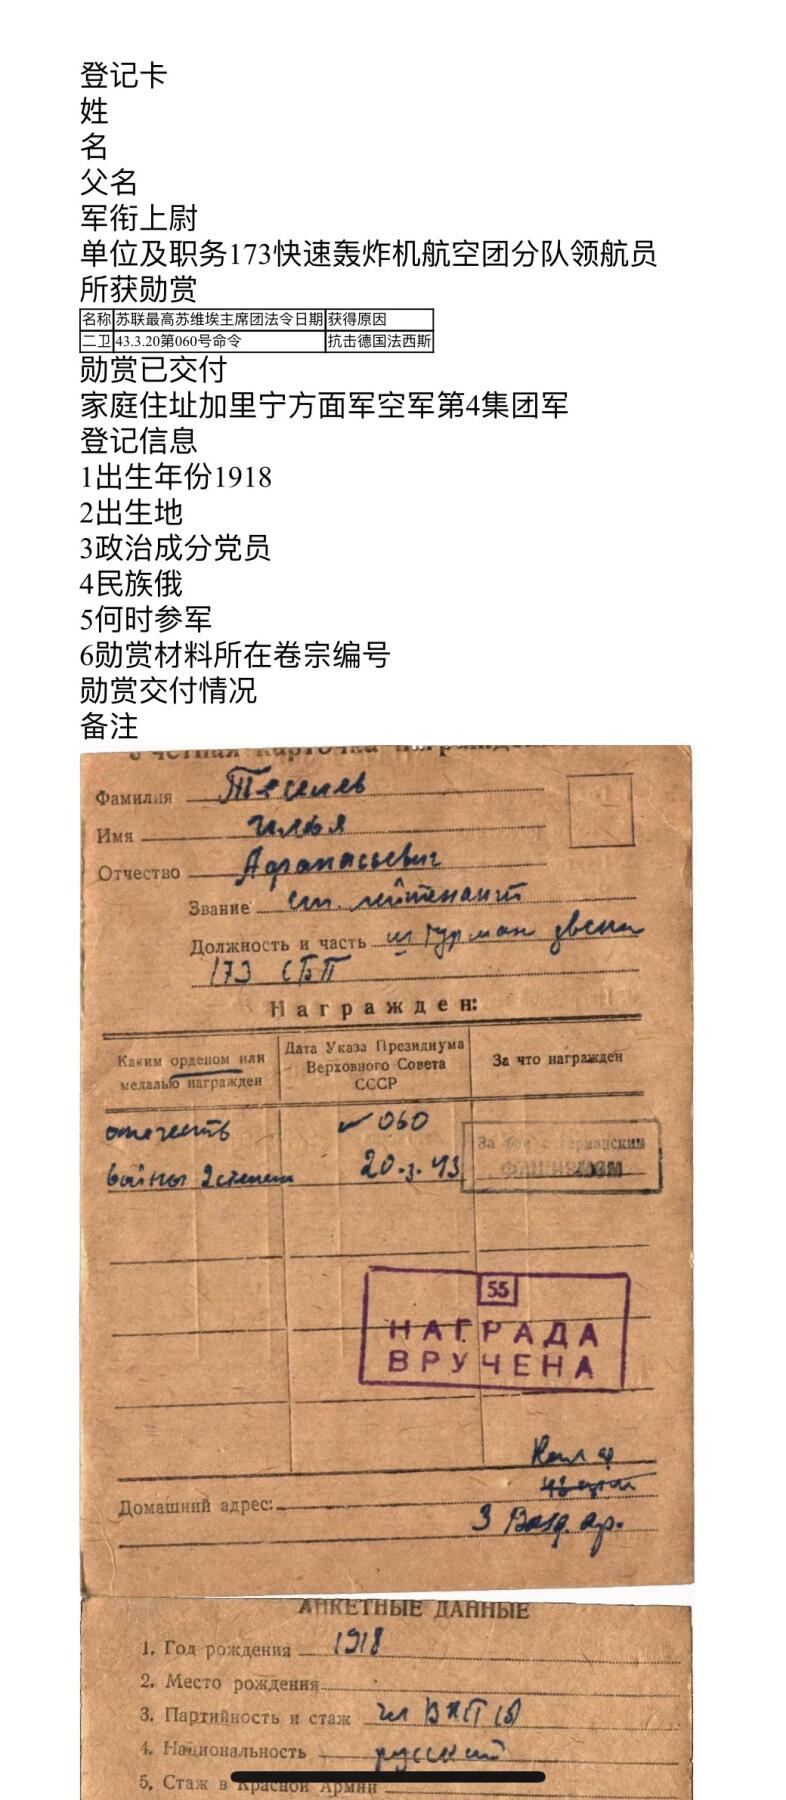 登记卡
姓
名
父名
军衔上尉
单位及职务173快速轰炸机航空团分队领航员
所获勋赏
名称 苏联最高苏维埃主席团法令日期 获得原因
二卫 43.3.20第060号命令 抗击德国法西斯
勋赏已交付
家庭住址加里宁方面军空军第4集团军
登记信息
1出生年份1918
2出生地
3政治成分党员
4民族俄
5何时参军
6勋赏材料所在卷宗编号
勋赏交付情况
备注
Учетная карточка
Фамилия
Имя Илья
Отчество Афанасьевич
Звание ст. лейтенант
Должность и часть штурман звена
173 СБП
Награжден:
Каким орденом или медалью награжден
Дата Указа Президиума Верховного Совета СССР
За что награжден
отечеств 060
войны 2 степени 20.3.43
За бои с германским
фашизмом
55
НАГРАДА
ВРУЧЕНА
Кал ф
Домашний адрес:
3 Возд. ар.
АНКЕТНЫЕ ДАННЫЕ
1. Год рождения 1918
2. Место рождения
3. Партийность и стаж чл ВКП(б)
4. Национальность русский
5. Стаж в Красной Армии